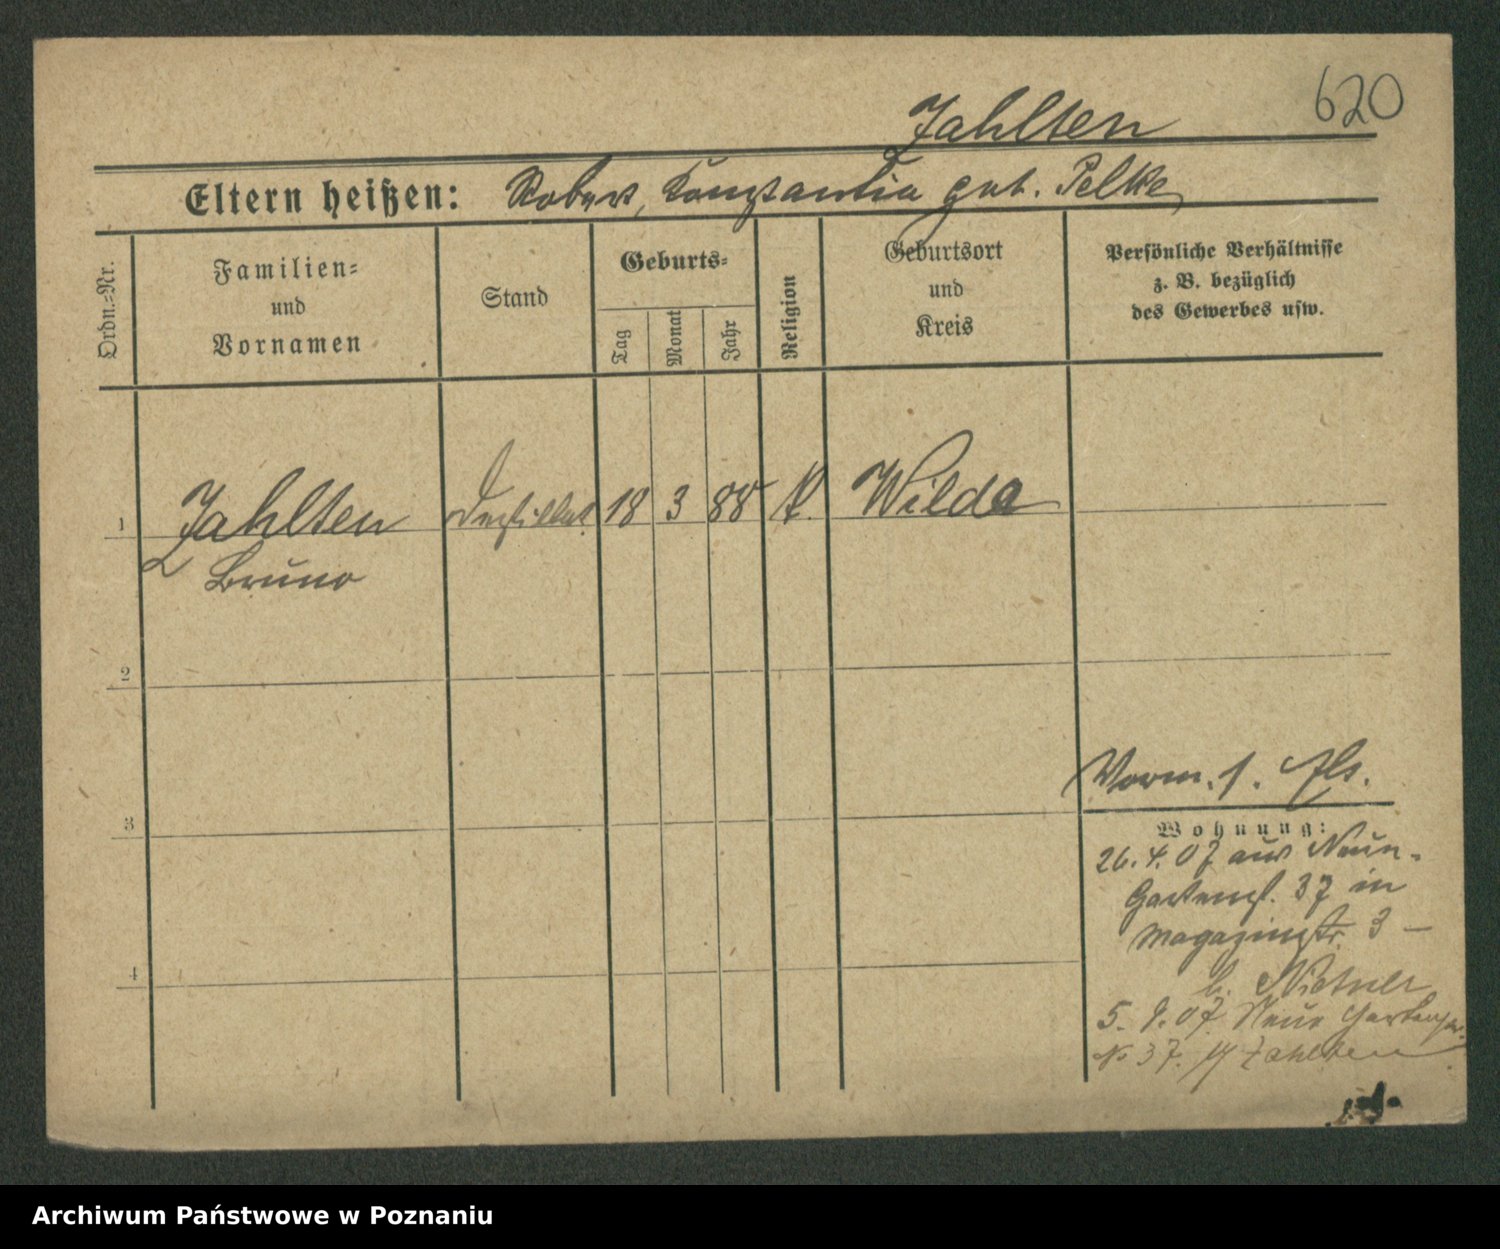 620
Zahlten
Eltern heißen: Robert, Konstantia geb. Pelke
Ordn.=Nr.
Familien=
und
Vornamen
Stand
Geburts=
Tag
Monat
Jahr
Religion
Geburtsort
und
Kreis
Persönliche Verhältnisse
z. B. bezüglich
des Gewerbes usw.
1 Zahlten 18 3 88 K. Wilda
Bruno
2
3
4
Vorm. 1.
Wohnung:
26. 4. 07 aus Neue-
Gartenst. 37 in
Magazinstr. 3 —
b.
5. 9. 07 Neue Gartenstr.
No 37. Zahlten
Archiwum Państwowe w Poznaniu